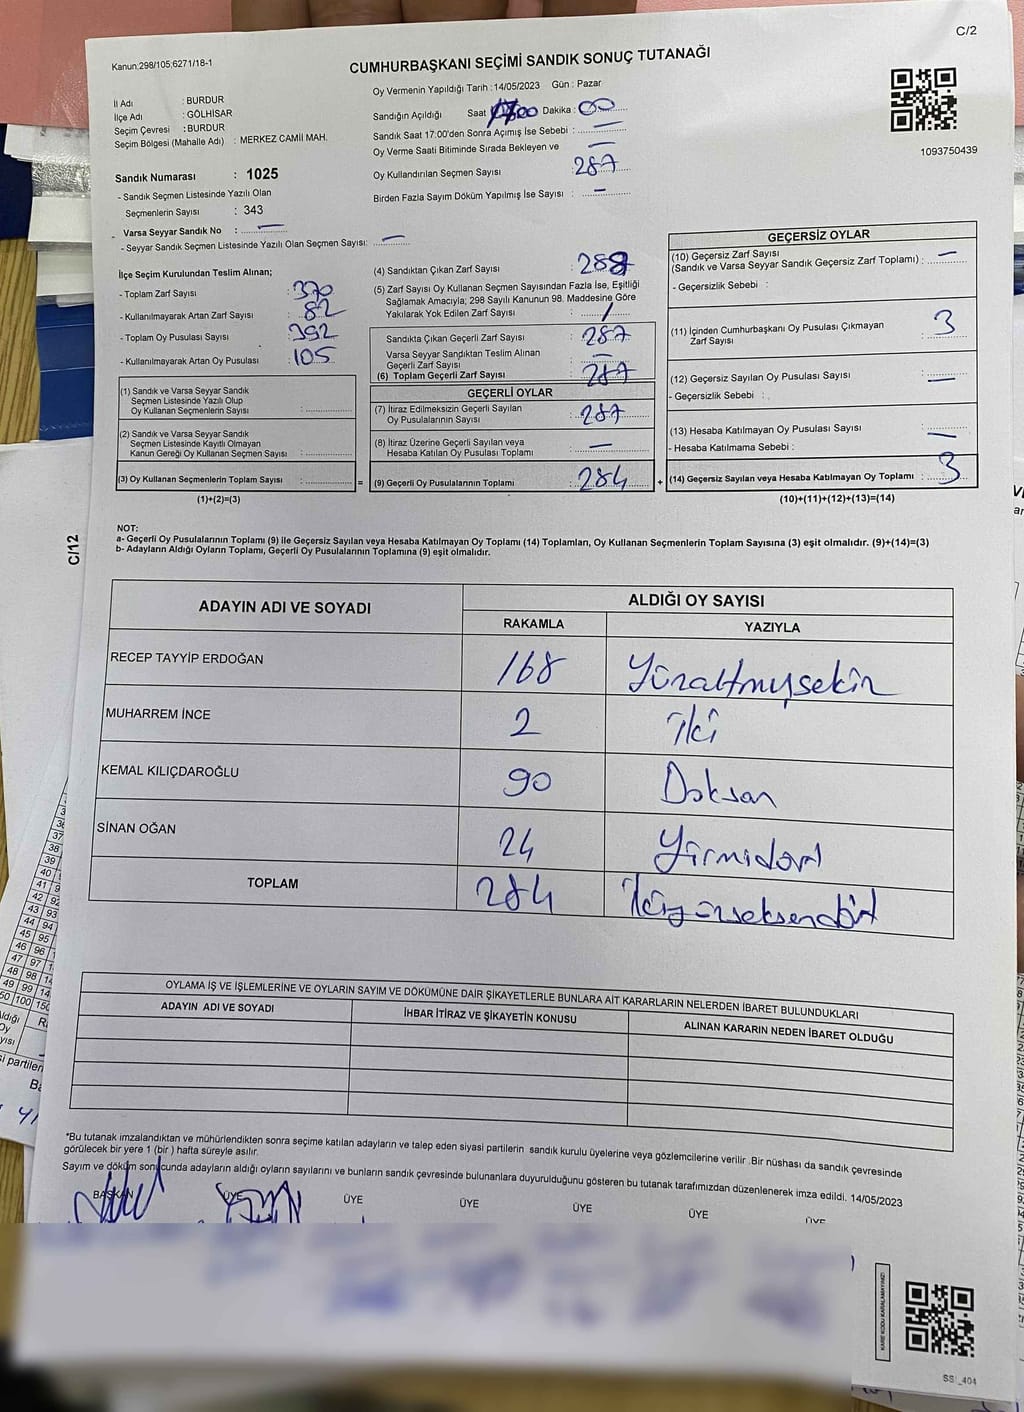 C/2
Kanun:298/105;6271/18-1
CUMHURBAŞKANI SEÇİMİ SANDIK SONUÇ TUTANAĞI
İl Adı : BURDUR
İlçe Adı : GÖLHİSAR
Seçim Çevresi : BURDUR
Seçim Bölgesi (Mahalle Adı) : MERKEZ CAMİİ MAH.
Oy Vermenin Yapıldığı Tarih :14/05/2023 Gün : Pazar
Sandığın Açıldığı Saat Dakika : 00
Sandık Saat 17:00'den Sonra Açımış İse Sebebi : —
Oy Verme Saati Bitiminde Sırada Bekleyen ve —
Oy Kullandırılan Seçmen Sayısı : 287
Birden Fazla Sayım Döküm Yapılmış İse Sayısı : —
1093750439
Sandık Numarası : 1025
- Sandık Seçmen Listesinde Yazılı Olan
Seçmenlerin Sayısı : 343
Varsa Seyyar Sandık No : —
- Seyyar Sandık Seçmen Listesinde Yazılı Olan Seçmen Sayısı: —
İlçe Seçim Kurulundan Teslim Alınan;
- Toplam Zarf Sayısı : 370
- Kullanılmayarak Artan Zarf Sayısı : 82
- Toplam Oy Pusulası Sayısı : 392
- Kullanılmayarak Artan Oy Pusulası : 105
(1) Sandık ve Varsa Seyyar Sandık
Seçmen Listesinde Yazılı Olup
Oy Kullanan Seçmenlerin Sayısı :
(2) Sandık ve Varsa Seyyar Sandık
Seçmen Listesinde Kayıtlı Olmayan
Kanun Gereği Oy Kullanan Seçmen Sayısı :
(3) Oy Kullanan Seçmenlerin Toplam Sayısı : =
(1)+(2)=(3)
(4) Sandıktan Çıkan Zarf Sayısı : 288
(5) Zarf Sayısı Oy Kullanan Seçmen Sayısından Fazla İse, Eşitliği
Sağlamak Amacıyla; 298 Sayılı Kanunun 98. Maddesine Göre
Yakılarak Yok Edilen Zarf Sayısı : 1
Sandıkta Çıkan Geçerli Zarf Sayısı : 287
Varsa Seyyar Sandıktan Teslim Alınan
Geçerli Zarf Sayısı : —
(6) Toplam Geçerli Zarf Sayısı : 287
GEÇERLİ OYLAR
(7) İtiraz Edilmeksizin Geçerli Sayılan
Oy Pusulalarının Sayısı : 287
(8) İtiraz Üzerine Geçerli Sayılan veya
Hesaba Katılan Oy Pusulası Toplamı : —
(9) Geçerli Oy Pusulalarının Toplamı : 284 +
GEÇERSİZ OYLAR
(10) Geçersiz Zarf Sayısı
(Sandık ve Varsa Seyyar Sandık Geçersiz Zarf Toplamı) : —
- Geçersizlik Sebebi :
(11) İçinden Cumhurbaşkanı Oy Pusulası Çıkmayan
Zarf Sayısı : 3
(12) Geçersiz Sayılan Oy Pusulası Sayısı : —
- Geçersizlik Sebebi :
(13) Hesaba Katılmayan Oy Pusulası Sayısı : —
- Hesaba Katılmama Sebebi :
(14) Geçersiz Sayılan veya Hesaba Katılmayan Oy Toplamı : 3
(10)+(11)+(12)+(13)=(14)
NOT:
a- Geçerli Oy Pusulalarının Toplamı (9) ile Geçersiz Sayılan veya Hesaba Katılmayan Oy Toplamı (14) Toplamları, Oy Kullanan Seçmenlerin Toplam Sayısına (3) eşit olmalıdır. (9)+(14)=(3)
b- Adayların Aldığı Oyların Toplamı, Geçerli Oy Pusulalarının Toplamına (9) eşit olmalıdır.
C/12
ADAYIN ADI VE SOYADI ALDIĞI OY SAYISI
RAKAMLA YAZIYLA
RECEP TAYYİP ERDOĞAN 168 Yüzaltmışsekiz
MUHARREM İNCE 2 iki
KEMAL KILIÇDAROĞLU 90 Doksan
SİNAN OĞAN 24 Yirmidört
TOPLAM 284 İkiyüzseksendört
OYLAMA İŞ VE İŞLEMLERİNE VE OYLARIN SAYIM VE DÖKÜMÜNE DAİR ŞİKAYETLERLE BUNLARA AİT KARARLARIN NELERDEN İBARET BULUNDUKLARI
ADAYIN ADI VE SOYADI İHBAR İTİRAZ VE ŞİKAYETİN KONUSU ALINAN KARARIN NEDEN İBARET OLDUĞU
*Bu tutanak imzalandıktan ve mühürlendikten sonra seçime katılan adayların ve talep eden siyasi partilerin sandık kurulu üyelerine veya gözlemcilerine verilir .Bir nüshası da sandık çevresinde
görülecek bir yere 1 (bir ) hafta süreyle asılır.
Sayım ve döküm sonucunda adayların aldığı oyların sayılarını ve bunların sandık çevresinde bulunanlara duyurulduğunu gösteren bu tutanak tarafımızdan düzenlenerek imza edildi. 14/05/2023
BAŞKAN ÜYE ÜYE ÜYE ÜYE ÜYE ÜYE